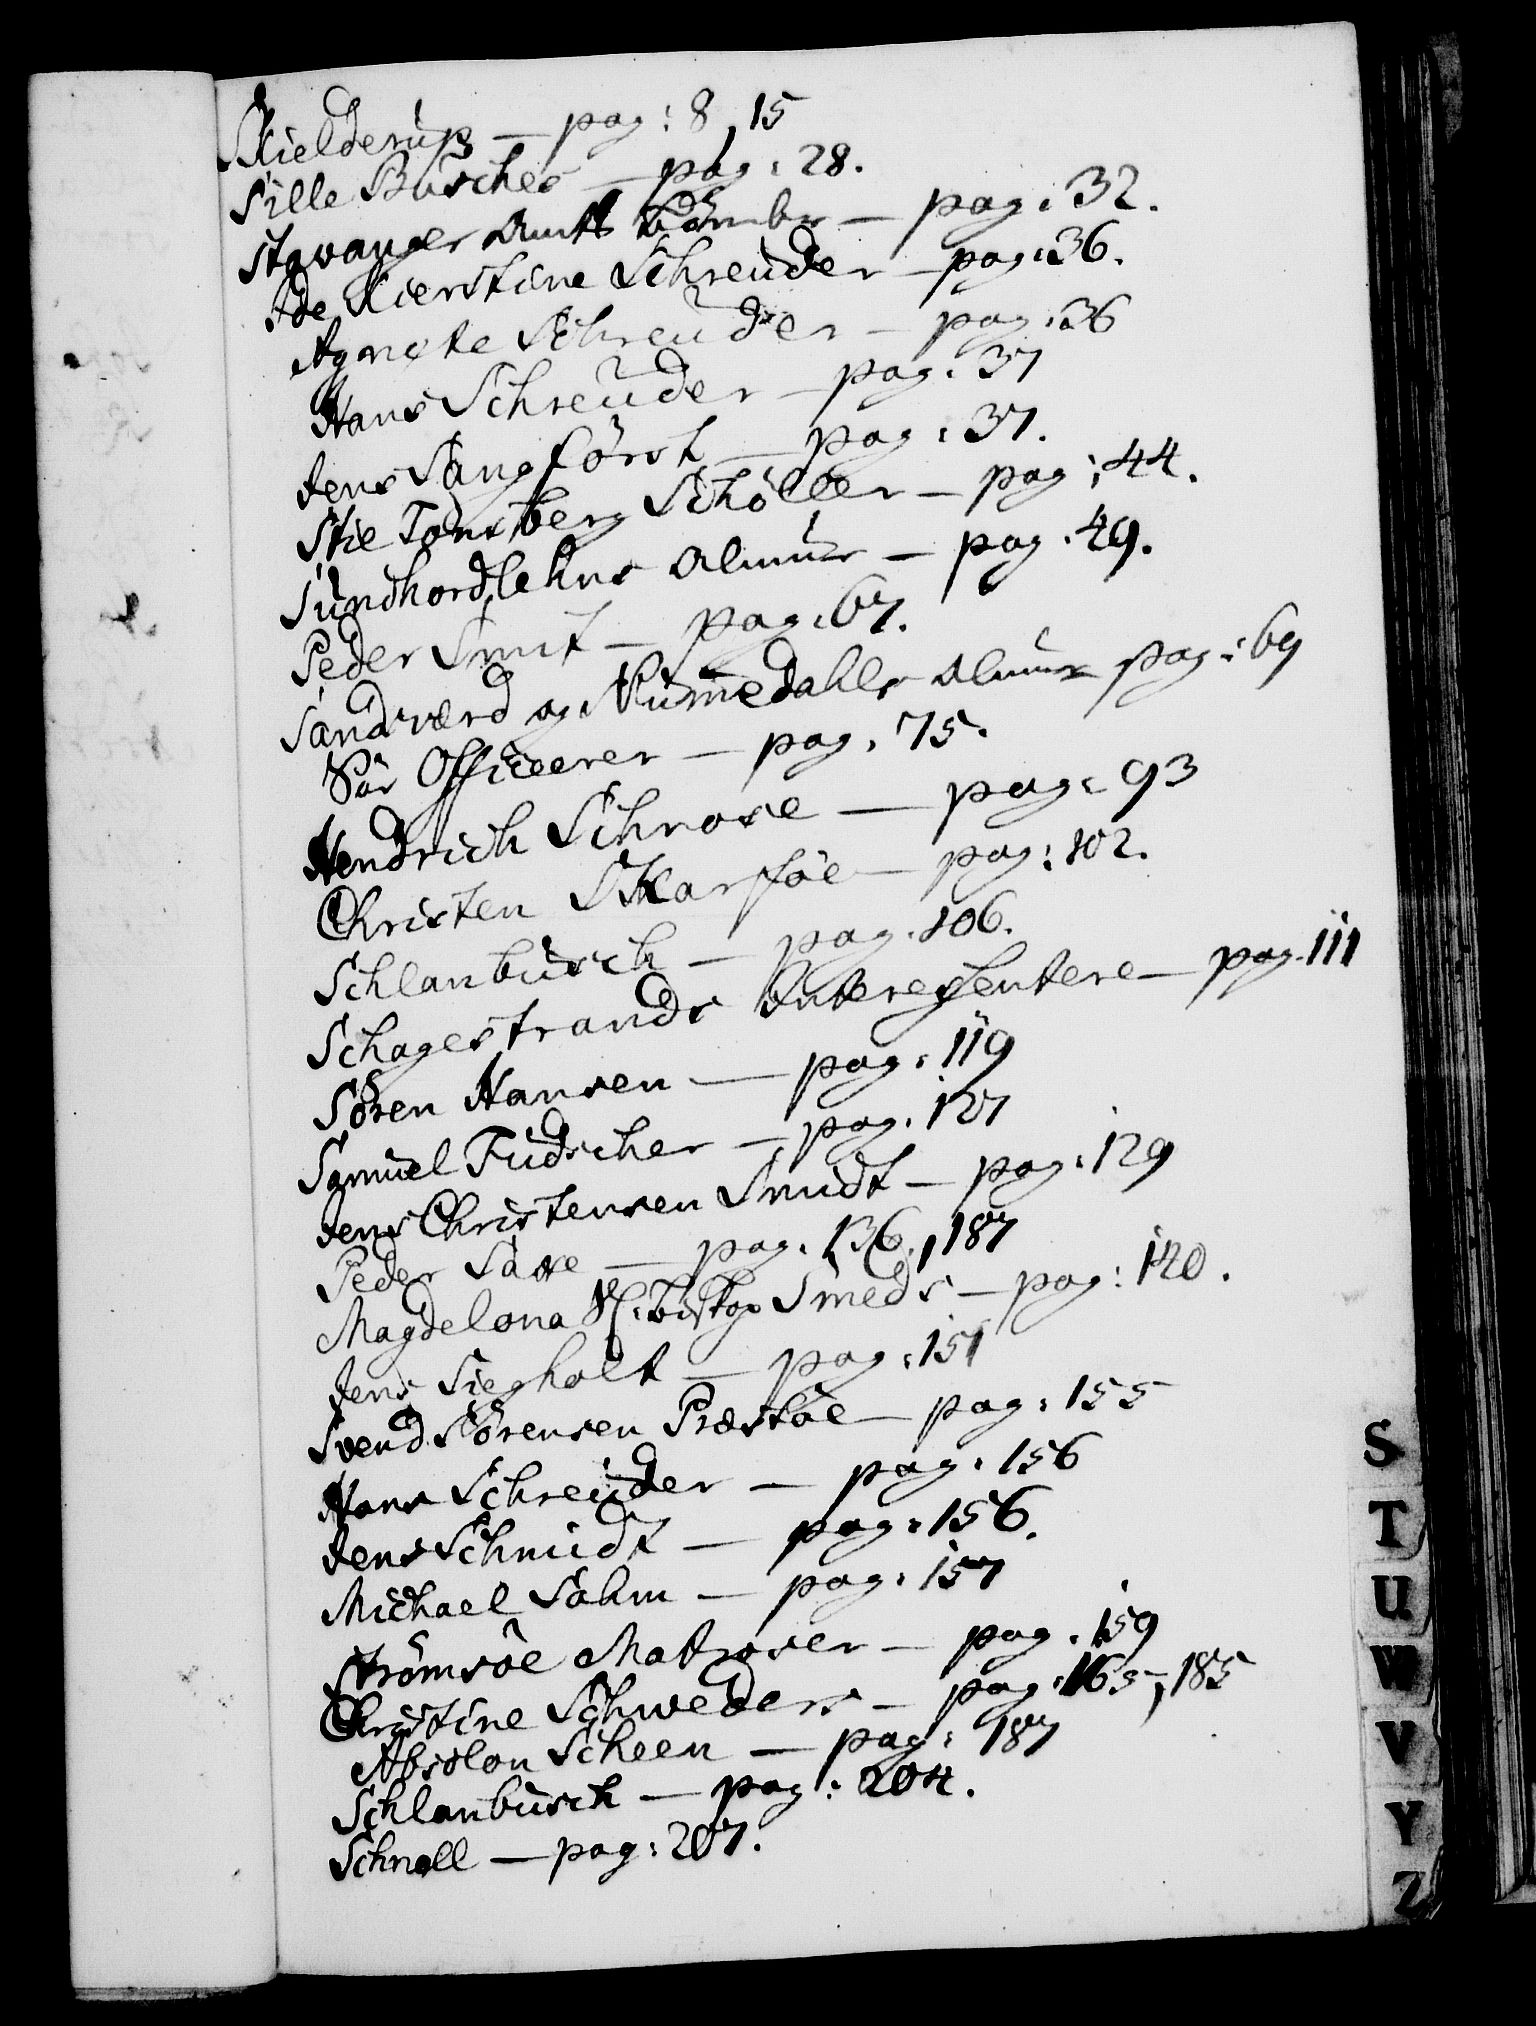 Skielderup — pag: 8, 15
Sille Busches — pag: 28.
Stavanger Amts — pag: 32.
Ide Kierstine Schreuder — pag: 36.
Agnete Schreuder — pag: 36
Hans Schreuder — pag: 37
Jens Sangförst — pag: 37.
Stie Tonsberg Schöller — pag: 44.
Sundhordlehns Almur — pag: 49.
Peder Smit — pag: 67.
Sandsverd og Numedahls Almur pag: 69
Söe Officerer — pag: 75.
Hendrich Schnose — pag: 93
Christen Skarföe — pag: 102.
Schlanbusch — pag: 106.
Schagestrands Interessentere — pag. 111
Søren Hansen — pag: 119
Samuel Tudscher — pag: 127
Jens Christensen Smidt — pag: 129
Peder Saxe — pag: 136, 187
Magdelona Sl: biskop Smeds — pag: 120.
Jens Siegholt — pag: 151
Svend Sörensen Præstöe — pag: 155
Hans Schreuder — pag: 156
Jens Schmidt — pag: 156.
Michael Sahm — pag: 157
Strömsöe Matroser — pag: 159
Christine Schweders — pag: 165, 185
Absolon Scheen — pag: 187
Schlanbusch — pag: 204.
Schnell — pag: 207.
S
T
U
W
V
Y
Z